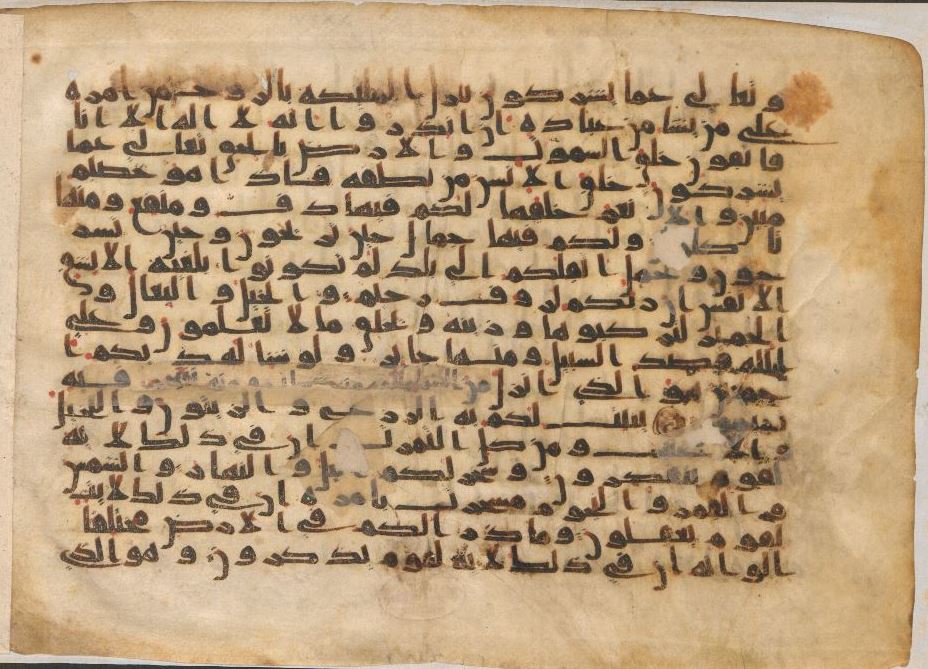 و تعالى عما يشركون ينزل الملئكه بالروح من امره
على من يشا من عباده ان انذروا انه لا اله الا انا
فاتقون خلق السموت والارض بالحق تعالى عما
يشركون خلق الانسن من نطفه فاذا هو خصيم
مبين والانعم خلقها لكم فيها دف ومنفع ومنها
تاكلون ولكم فيها جمال حين تريحون وحين تسر
حون وتحمل اثقالكم الى بلد لم تكونوا بلغيه الا بشق
الانفس ان ربكم لروف رحيم والخيل والبغال و
الحمير لتركبوها وزينه ويخلق ما لا تعلمون وعلى
الله قصد السبيل ومنها جاير ولو شا لهديكم ا
جمعين هو الذي انزل من السما ما لكم منه شراب ومنه شجر فيه
تسيمون ينبت لكم به الزرع والزيتون والنخيل
والاعنب ومن كل الثمرت ان في ذلك لايه
لقوم يتفكرون وسخر لكم اليل والنهار والشمس
والقمر والنجوم مسخرت بامره ان في ذلك لايت
لقوم يعقلون وما ذرا لكم في الارض مختلفا
الوانه ان في ذلك لايه لقوم يذكرون وهو الذي